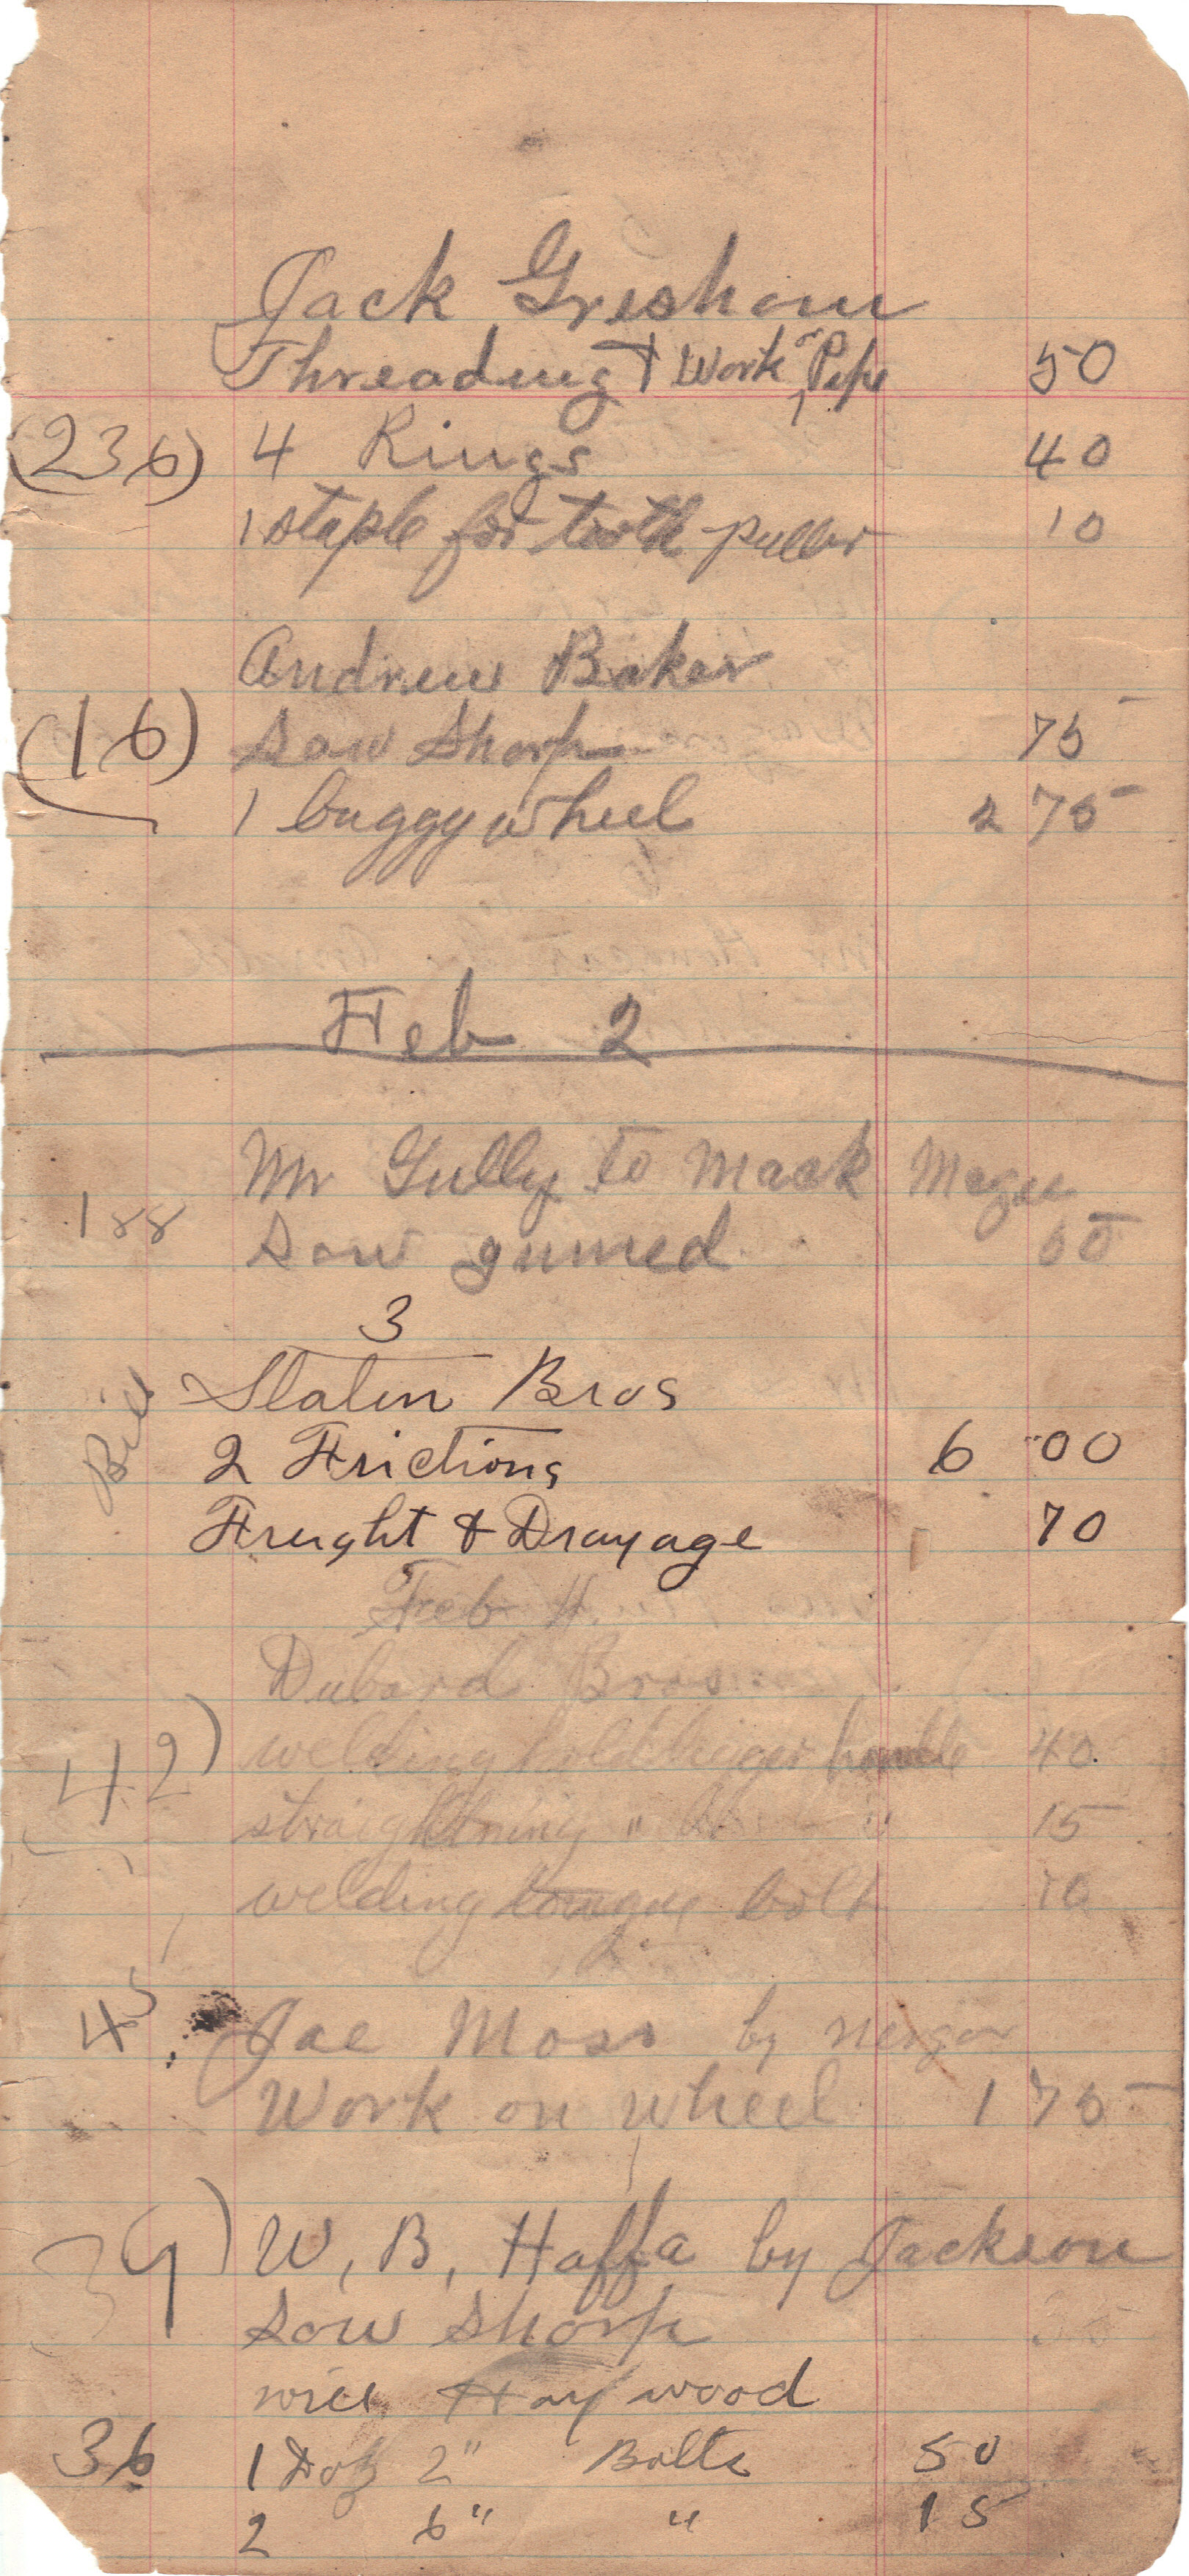 Jack Gresham
Threading & Work on Pipe 50
(236) 4 Rings 40
1 staple for tooth puller 10
Andrew Baker
(16) Saw Sharp 75
1 buggy wheel 2 75
Feb 2
Mr Gully to Mack
188 Saw gumed
3
Staten Bros
Bill 2 Frictions 6 00
Freight & Drayage 70
Feb 4
Dubard Bros
42) welding handle 40
straightning " " 15
welding bolt
45 Joe Moss by
Work on wheel 1 75
W, B, Haffa by Jackson
Saw Sharp
will Haywood
36 1 Doz 2" Bolts 50
2 6" " 15